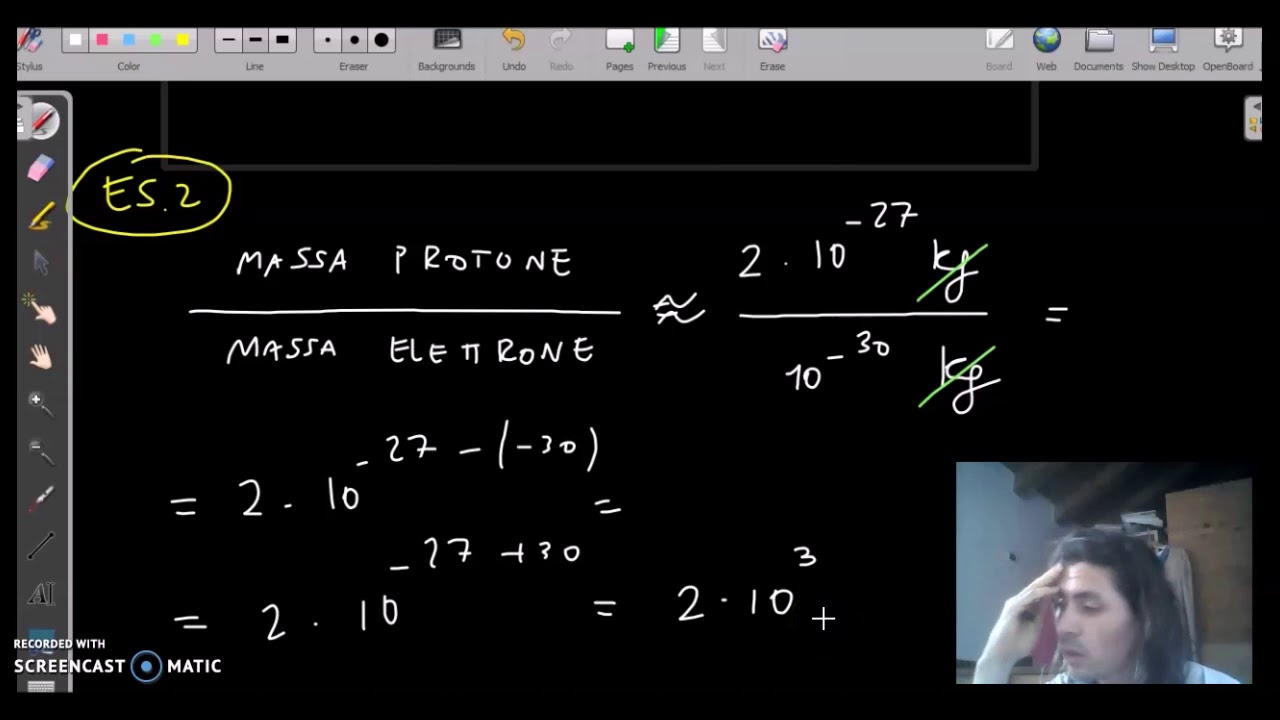 Stylus Color Line Eraser Backgrounds Undo Redo Pages Previous Next Erase Board Web Documents Show Desktop OpenBoard
ES.2
MASSA PROTONE
MASSA ELETTRONE
≈
2 · 10^-27 kg
10^-30 kg
=
= 2 · 10^-27-(-30) =
= 2 · 10^-27+30 = 2 · 10^3
AI
RECORDED WITH
SCREENCAST MATIC